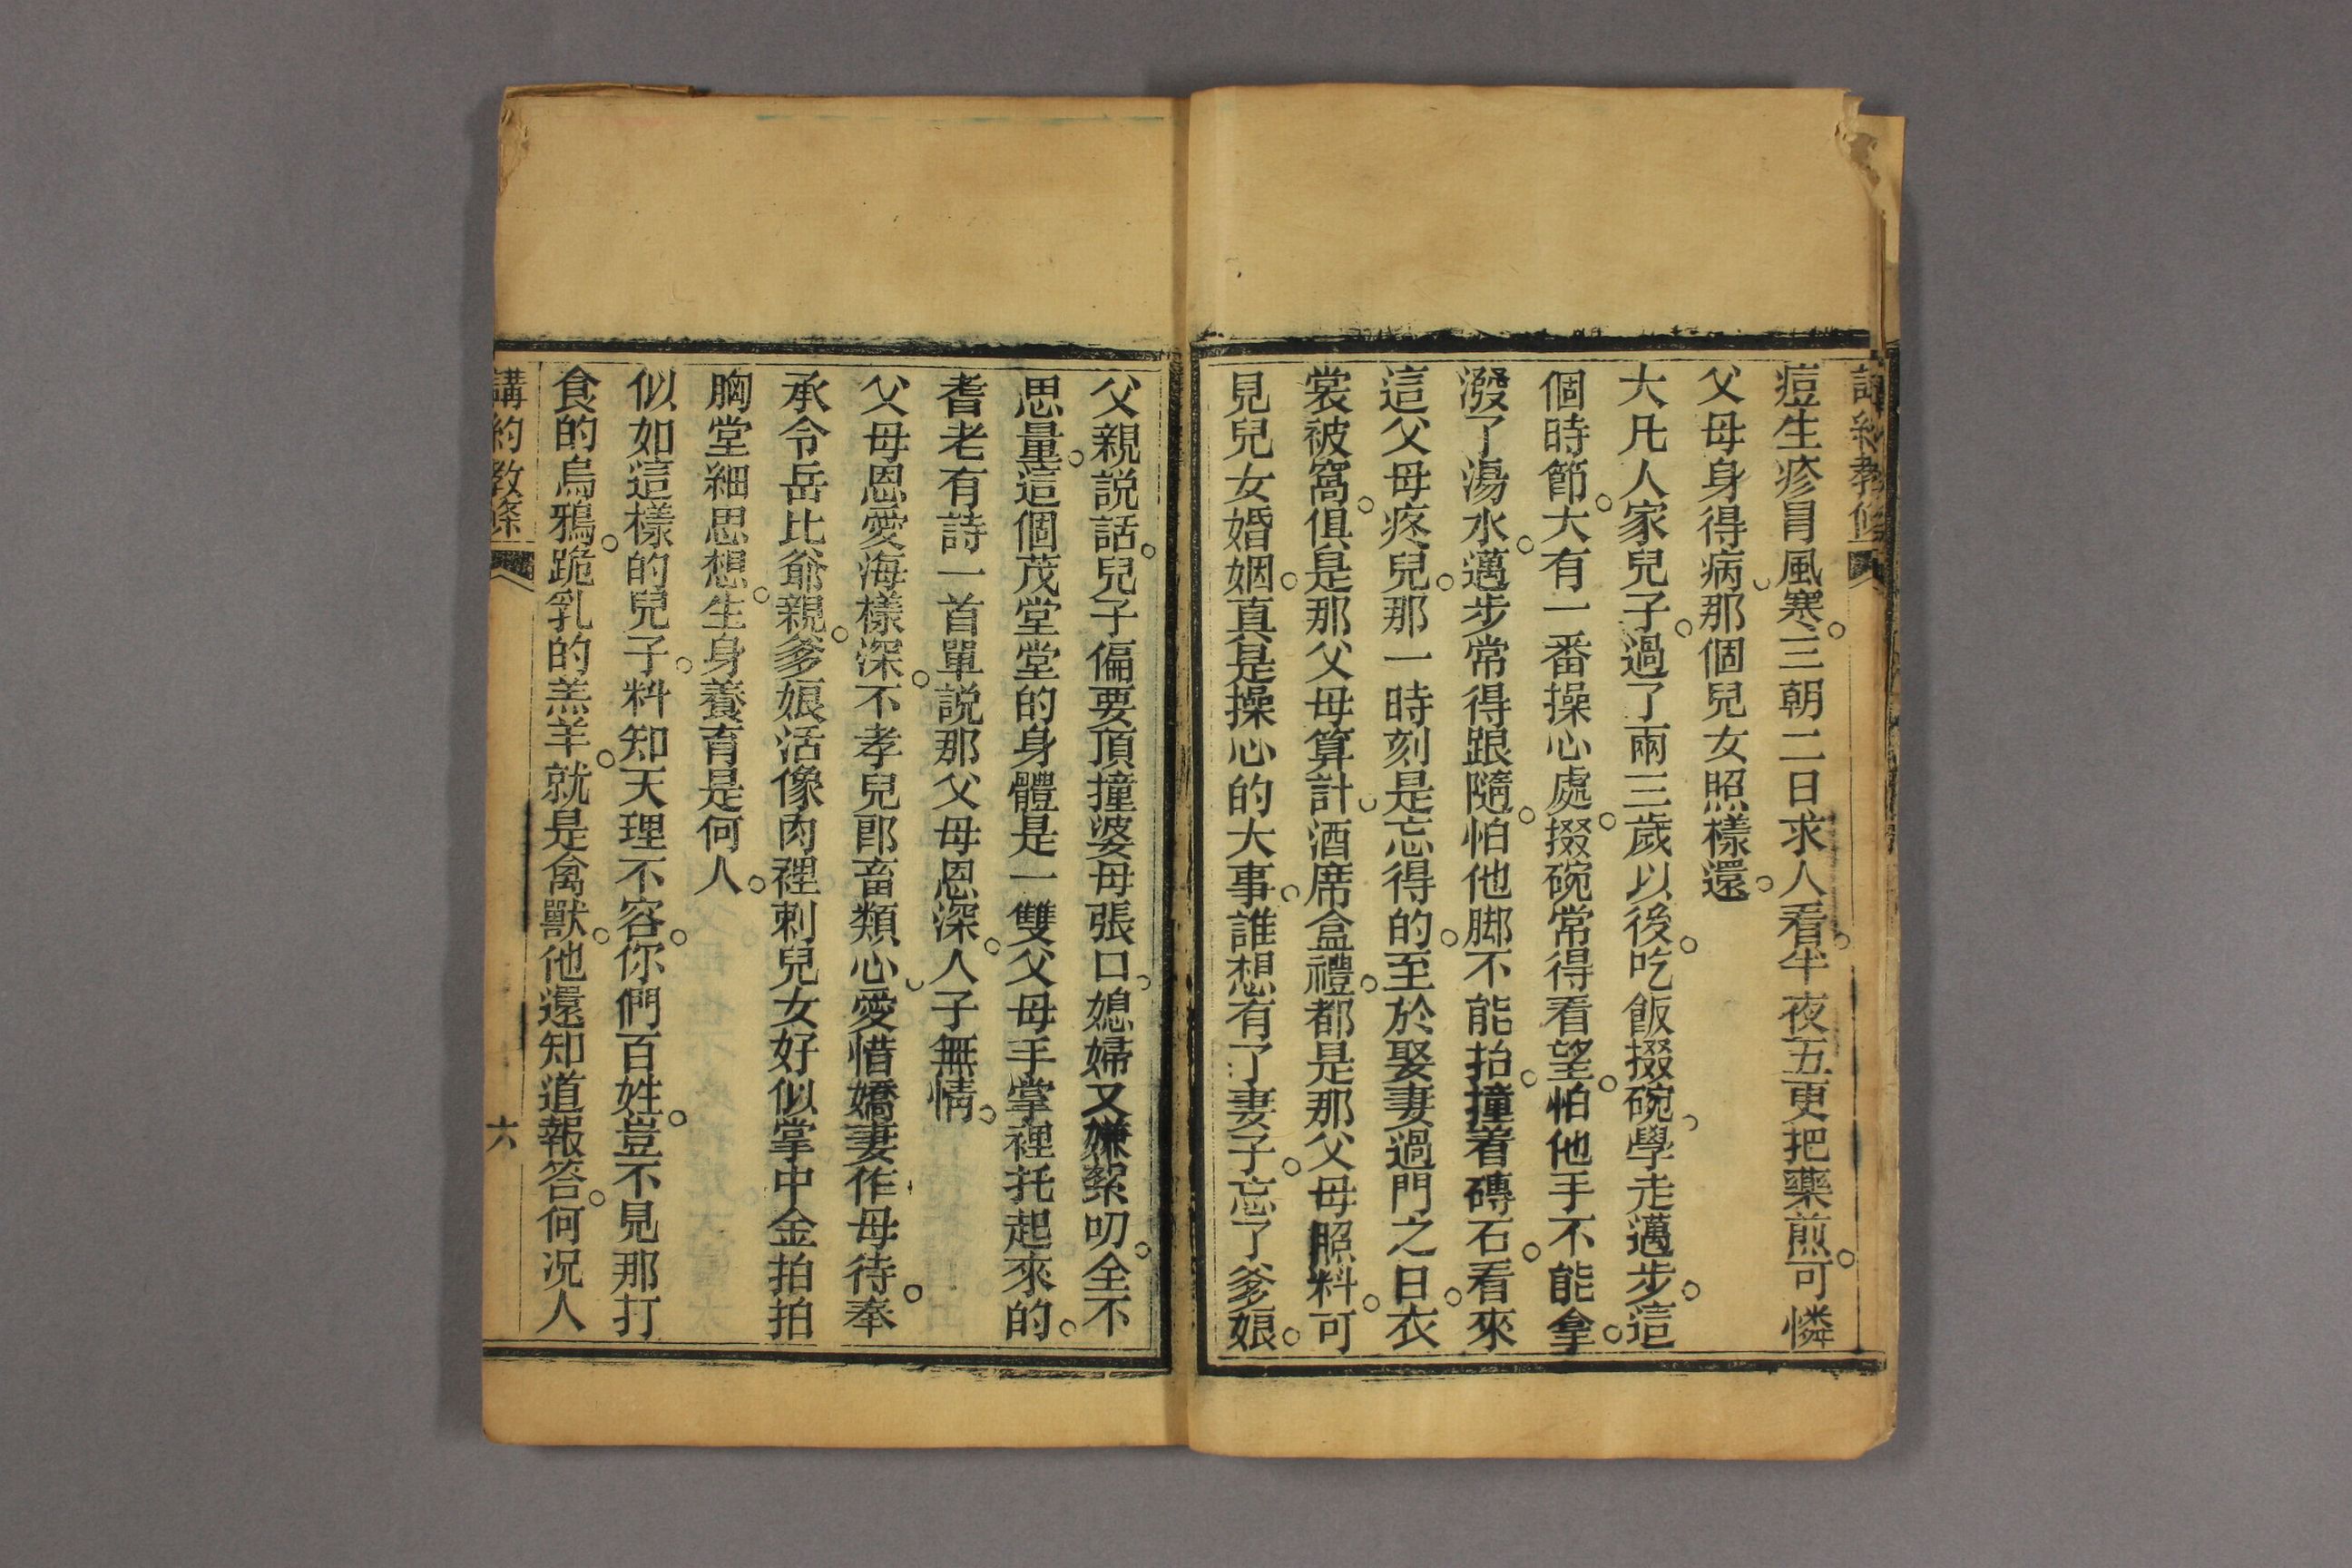 講約教條
痘生疹冐風寒。三朝二日求人看。半夜五更把藥煎。可憐
父母身得病。那個兒女照樣還。
大凡人家兒子。過了兩三歲以後。吃飯掇碗。學走邁步。這
個時節。大有一番操心處。掇碗常得看望。怕他手不能拿。
潑了湯水。邁步常得跟隨。怕他脚不能抬。撞着磚石。看來
這父母疼兒。那一時刻是忘得的。至於娶妻過門之日。衣
裳被窩。俱是那父母算計。酒席盒禮。都是那父母照料。可
見兒女婚姻。真是操心的大事。誰想有了妻子。忘了爹娘。
父親説話。兒子偏要頂撞。婆母張口。媳婦又嫌絮叨。全不
思量。這個茂堂堂的身體。是一雙父母手掌裡托起來的。
耆老有詩一首。單説那父母恩深。人子無情。
父母恩愛海樣深。不孝兒郎畜類心。愛惜嬌妻作母待。奉
承令岳比爺親。爹娘活像肉裡刺。兒女好似掌中金。拍拍
胸堂細思想。生身養育是何人。
似如這樣的兒子。料知天理不容。你們百姓。豈不見那打
食的烏鴉。跪乳的羔羊。就是禽獸。他還知道報答。何况人
講約教條
六